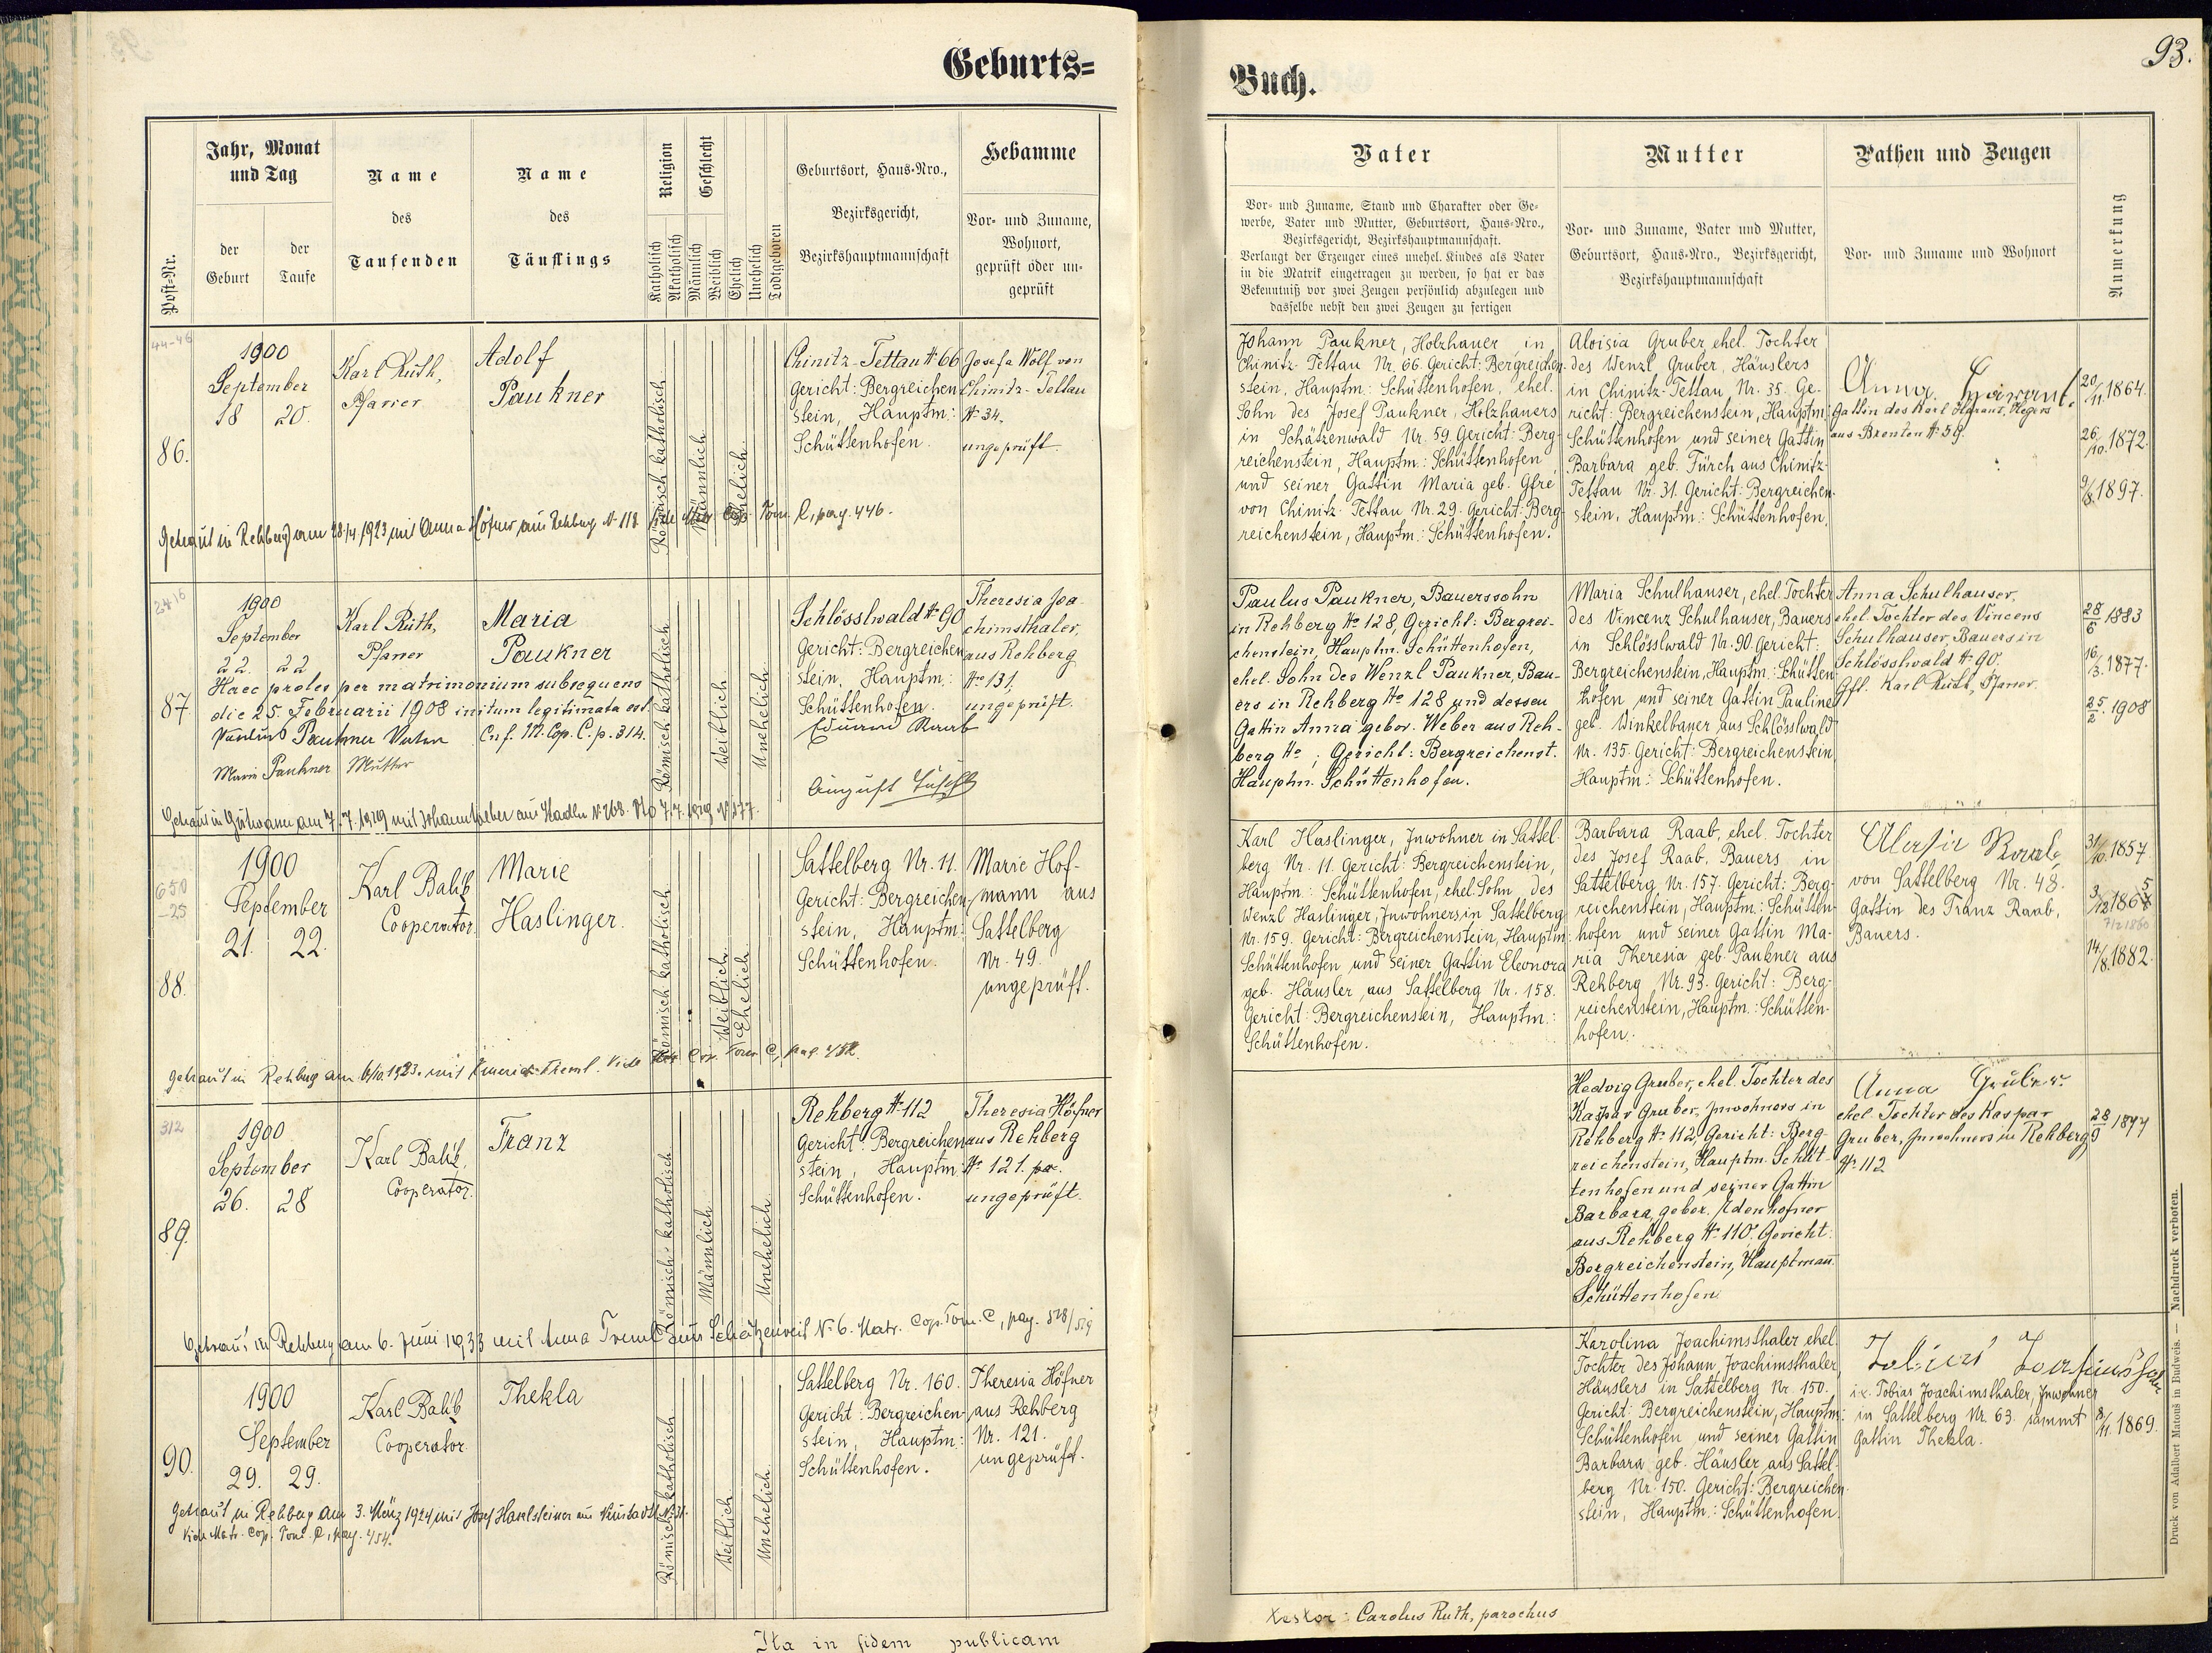 Geburts=
Buch.
93.
Post-Nr.
Jahr, Monat
und Tag
der
Geburt
der
Taufe
Name
des
Taufenden
Name
des
Täuflings
Religion
Katholisch
Akatholisch
Geschlecht
Männlich
Weiblich
Ehelich
Unehelich
Todtgeboren
Geburtsort, Haus-Nro.,
Bezirksgericht,
Bezirkshauptmannschaft
Hebamme
Vor- und Zuname,
Wohnort,
geprüft oder un-
geprüft
Vater
Vor- und Zuname, Stand und Charakter oder Ge-
werbe, Vater und Mutter, Geburtsort, Haus-Nro.,
Bezirksgericht, Bezirkshauptmannschaft.
Verlangt der Erzeuger eines unehel. Kindes als Vater
in die Matrik eingetragen zu werden, so hat er das
Bekenntniß vor zwei Zeugen persönlich abzulegen und
dasselbe nebst den zwei Zeugen zu fertigen
Mutter
Vor- und Zuname, Vater und Mutter,
Geburtsort, Haus-Nro., Bezirksgericht,
Bezirkshauptmannschaft
Pathen und Zeugen
Vor- und Zuname und Wohnort
Anmerkung
44-46
86.
1900
September
18 20.
Karl Ruth,
Pfarrer
Adolf
Paukner
Römisch katholisch
Männlich
Ehelich
Chinitz-Tettau № 66
Gericht: Bergreichen
stein, Hauptm:
Schüttenhofen.
Josefa Wolf von
Chinitz-Tettau
№ 34.
ungeprüft.
Getraut in Rehberg am 28/4. 1923 mit Anna Höfner aus Rehberg N. 118. Vide Matr. Cop. Tom. C, pag. 446.
Johann Paukner, Holzhauer in
Chinitz-Tettau Nr. 66. Gericht: Bergreichen-
stein, Hauptm: Schüttenhofen, ehel.
Sohn des Josef Paukner, Holzhauers
in Schätzenwald Nr. 59. Gericht: Berg-
reichenstein, Hauptm: Schüttenhofen
und seiner Gattin Maria geb. Gfre
von Chinitz-Tettau Nr. 29. Gericht: Berg
reichenstein, Hauptm: Schüttenhofen.
Aloisia Gruber, ehel. Tochter
des Wenzl Gruber, Häuslers
in Chinitz-Tettau Nr. 35. Ge-
richt: Bergreichenstein, Hauptm:
Schüttenhofen und seiner Gattin
Barbara geb. Fürch aus Chinitz-
Tettau Nr. 31. Gericht: Bergreichen-
stein, Hauptm: Schüttenhofen.
Anna
Gattin des Karl Hegers
aus Brenten № 59.
20/11. 1864.
26/10. 1872.
9/8. 1897.
24 16
87.
1900
September
22. 22
Karl Ruth,
Pfarrer
Maria
Paukner
Haec proles per matrimonium subsequens
die 25. Februarii 1908 initum legitimata est.
Paulus Paukner Vater Cnf. M. Cop. C. p. 314.
Marie Paukner Mutter
Römisch katholisch
Weiblich
Unehelich
Schlösslwald № 90
Gericht: Bergreichen
stein, Hauptm:
Schüttenhofen.
Eduard Raab
Theresia Joa
chimsthaler,
aus Rehberg
№ 131,
ungeprüft.
Getraut in am 7. 7. 1929 mit Johann Weber aus Stadln N. 268.
Paulus Paukner, Bauerssohn
in Rehberg № 128, Gericht: Bergrei-
chenstein, Hauptm. Schüttenhofen,
ehel. Sohn des Wenzl Paukner, Bau-
ers in Rehberg № 128 und dessen
Gattin Anna gebor. Weber aus Reh-
berg № ; Gericht: Bergreichenst.
Hauptm. Schüttenhofen.
Maria Schulhauser, ehel. Tochter
des Vincenz Schulhauser, Bauers
in Schlösslwald Nr. 90. Gericht:
Bergreichenstein, Hauptm: Schütten
hofen, und seiner Gattin Pauline
geb. Winkelbauer aus Schlösslwald
Nr. 135. Gericht: Bergreichenstein,
Hauptm: Schüttenhofen.
Anna Schulhauser,
ehel. Tochter des Vincens
Schulhauser, Bauers in
Schlösslwald № 90.
Gff. Karl Ruth, Pfarrer.
28/6 1883
16/3. 1877.
25/2. 1908
650
-25
88.
1900
September
21. 22.
Karl Balik
Cooperator.
Marie
Haslinger.
Römisch katholisch
Weiblich.
Ehelich
Sattelberg Nr. 11.
Gericht: Bergreichen-
stein, Hauptm:
Schüttenhofen.
Marie Hof-
mann aus
Sattelberg
Nr. 49.
ungeprüft.
Getraut in Rehberg am 6/10. 1923. mit Treml. Vide Matr. Cop. Tom. C, pag. 452.
Karl Haslinger, Inwohner in Sattel-
berg Nr. 11. Gericht: Bergreichenstein,
Hauptm: Schüttenhofen, ehel. Sohn des
Wenzl Haslinger, Inwohners in Sattelberg
Nr. 159. Gericht: Bergreichenstein, Hauptm:
Schüttenhofen und seiner Gattin Eleonora
geb. Häusler aus Sattelberg Nr. 158.
Gericht: Bergreichenstein, Hauptm:
Schüttenhofen.
Barbara Raab, ehel. Tochter
des Josef Raab, Bauers in
Sattelberg Nr. 157. Gericht: Berg-
reichenstein, Hauptm: Schütten-
hofen und seiner Gattin Ma-
ria Theresia geb. Paukner aus
Rehberg Nr. 93. Gericht: Berg-
reichenstein, Hauptm: Schütten-
hofen.
Raab
von Sattelberg Nr. 48.
Gattin des Franz Raab,
Bauers.
31/10. 1857.
14/8. 1882.
312
89.
1900
September
26. 28
Karl Balik,
Cooperator.
Franz
Römisch-katholisch
Männlich
Unehelich
Rehberg № 112
Gericht: Bergreichen
stein, Hauptm.
Schüttenhofen.
Theresia Höfner
aus Rehberg
№ 121.
ungeprüft.
Getraut in Rehberg am 6. Juni 1933 mit Anna Treml aus N. 6. Matr. Cop. Tom. C, pag. 528/529
Hedvig Gruber, ehel. Tochter des
Kaspar Gruber, Inwohners in
Rehberg № 112, Gericht: Berg-
reichenstein, Hauptm. Schüt-
tenhofen und seiner Gattin
Barbara, gebor. Adenhofner
aus Rehberg № 110. Gericht:
Bergreichenstein, Hauptman.
Schüttenhofen
Anna Gruber.
ehel. Tochter des Kaspar
Gruber, Inwohners in Rehberg
№ 112
28/9 1877
90.
1900
September
29. 29.
Karl Balik
Cooperator
Thekla
Römisch katholisch
Weiblich
Unehelich.
Sattelberg Nr. 160.
Gericht: Bergreichen-
stein, Hauptm:
Schüttenhofen.
Theresia Höfner
aus Rehberg
Nr. 121.
ungeprüft.
Getraut in Rehberg am 3. März 1924 mit Josef
Vide Matr. Cop. Tom. C, pag. 454.
Karolina Joachimsthaler ehel.
Tochter des Johann Joachimsthaler,
Häuslers in Sattelberg Nr. 150.
Gericht: Bergreichenstein, Hauptm:
Schüttenhofen und seiner Gattin
Barbara geb. Häusler aus Sattel-
berg Nr. 150. Gericht: Bergreichen-
stein, Hauptm: Schüttenhofen.
i.e. Tobias Joachimsthaler, Inwohner
in Sattelberg Nr. 63. sammt
Gattin Thekla.
8/11. 1869.
Ita in fidem publicam
testor: Carolus Ruth, parochus
Druck von Adalbert Matouš in Budweis. — Nachdruck verboten.